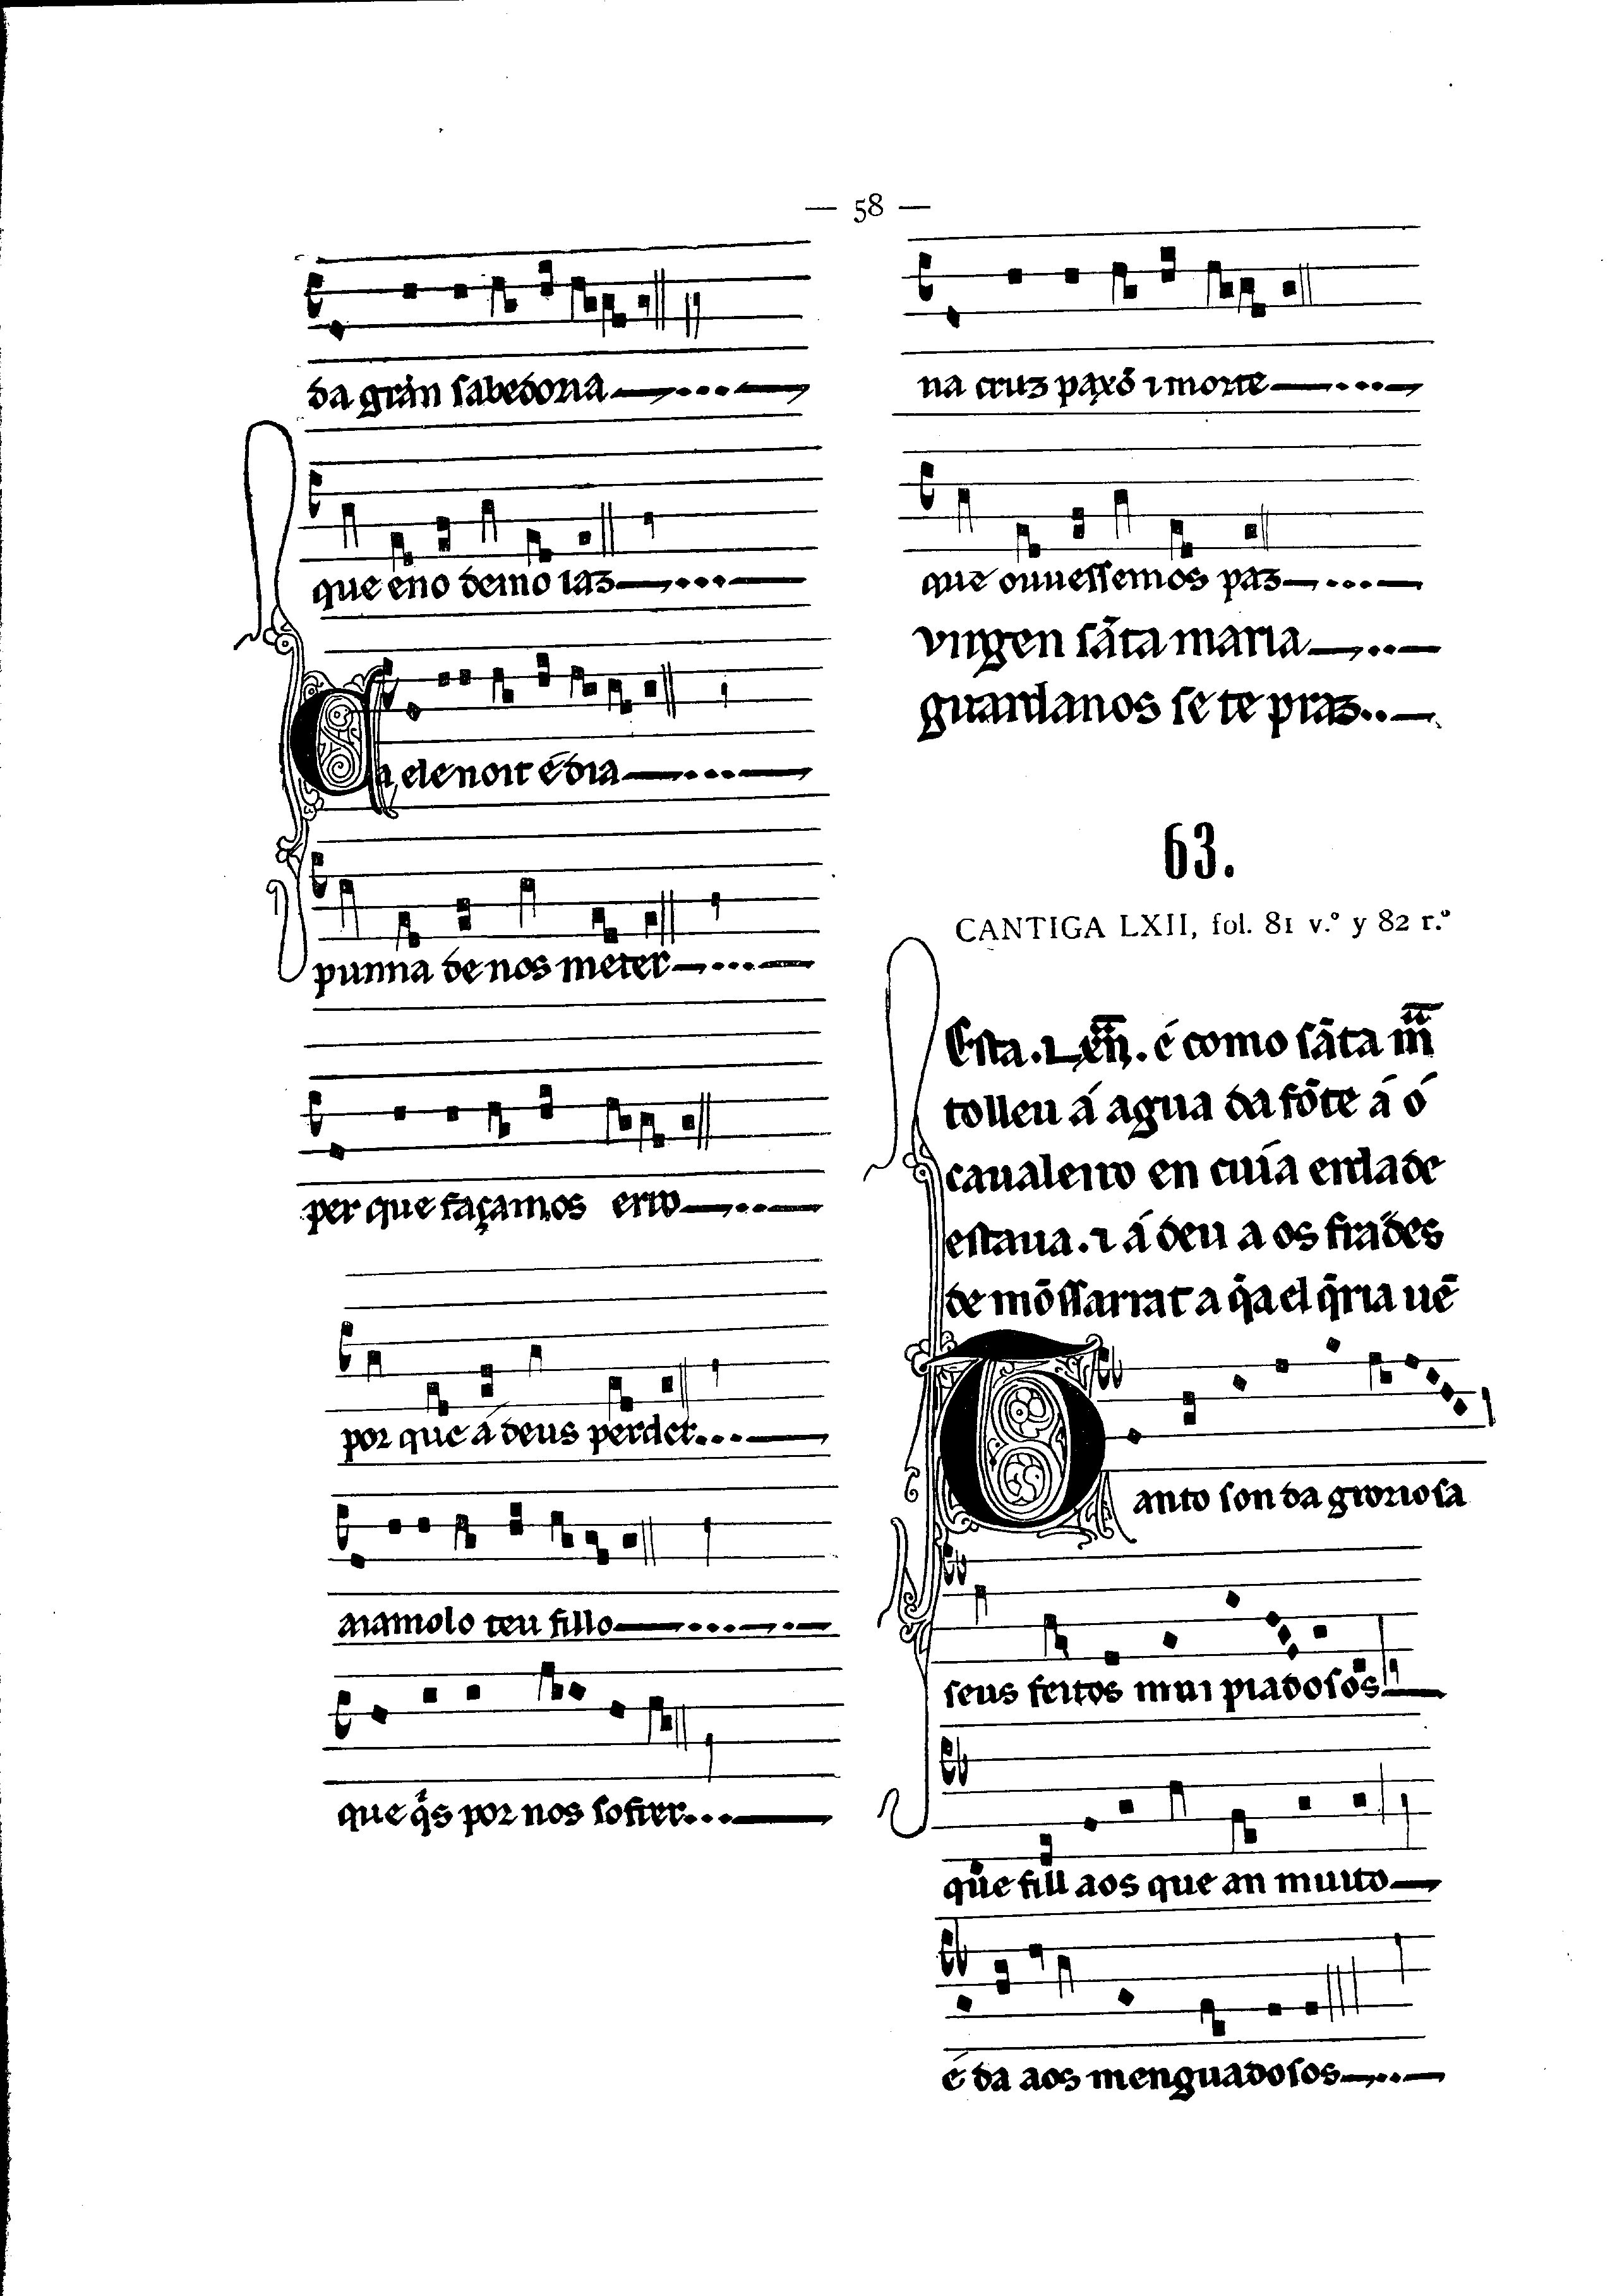 — 58 —
da gran sabedoria
que eno demo iaz
Ca ele noit é dia
punna de nos meter
per que façamos erro
por que á deus perder
aiamolo teu fillo
que q̇s por nos sofrer
na cruz paxõ ⁊ morte
que ouuessemos paz
virgen sãta maria
guardanos se te praz
63.
CANTIGA LXII, fol. 81 v.º y 82 r.º
Esta . é como sãta
tolleu á agua da fõte á ó
caualeiro en cuía erdade
estaua . ⁊ á deu a os frades
de mõssarrat a q̇ a el q̇ria uẽ
Tanto son da groriosa
seus feitos mui piadosos
que fill aos que an muito
é da aos menguadosos